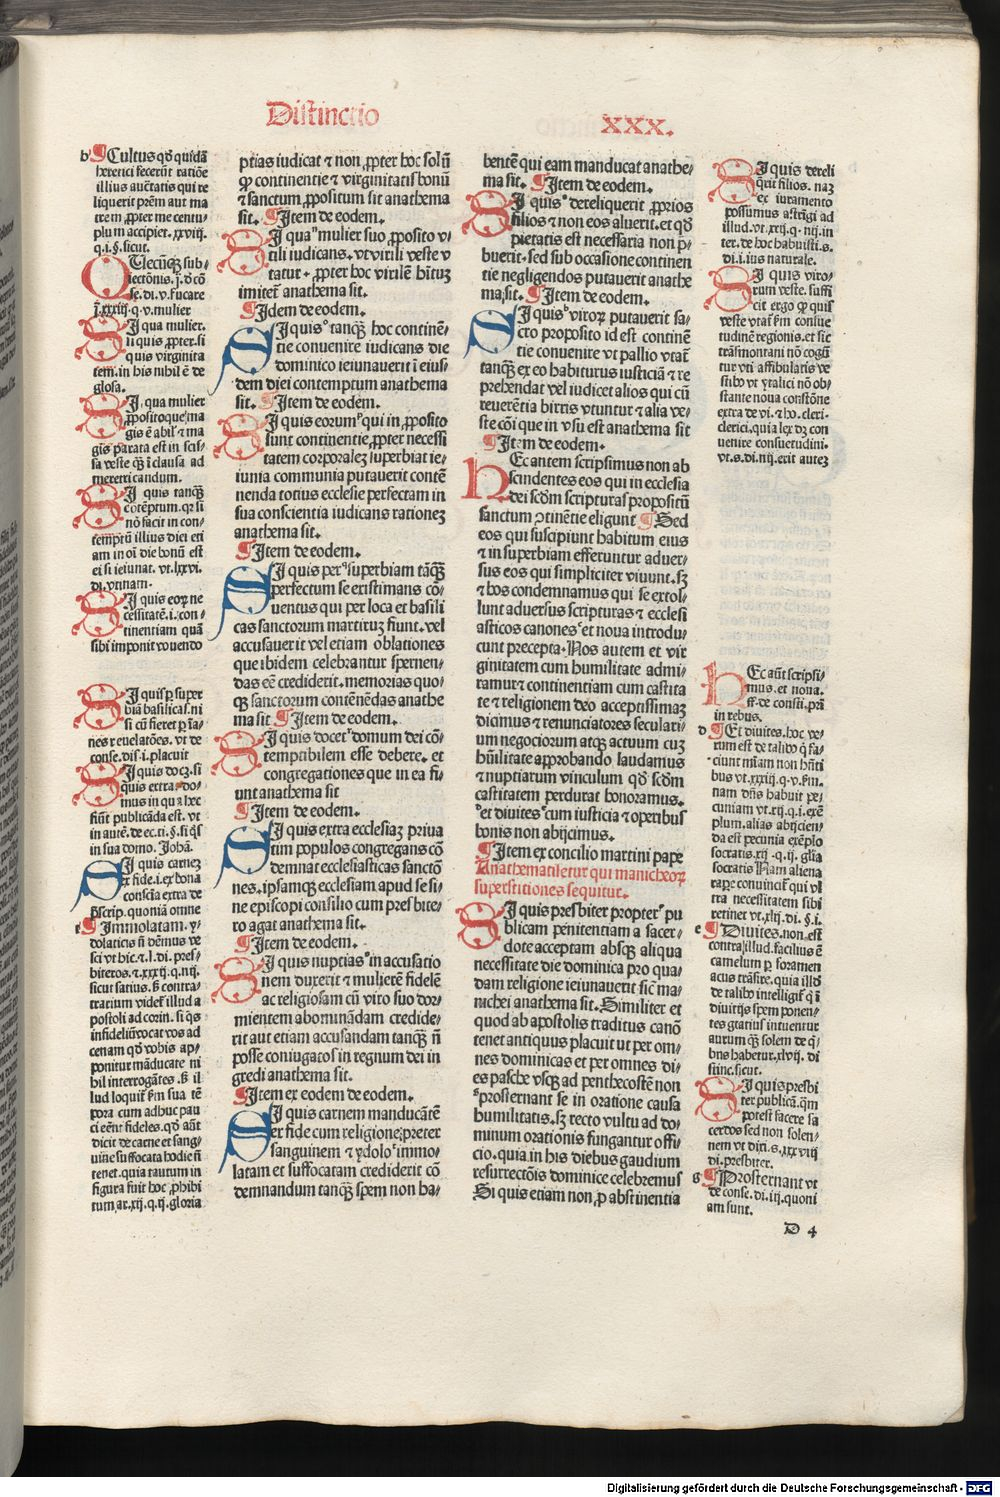 Distinctio XXX.
b ¶ Cultus qd̄ quidā
heretici fecerūt ratiōe
illius auētatis qui re
liquerit prēm aut ma
trem ꝓpter me centu⸗
plum accipiet. xxviij.
q.i.§.sicut.
se.di.v.fucare
Si qua mulier.
Si qua mulier
ꝓpositoque; ma
gis ē abil' ⁊ ma
gis parata est in scis⸗
sa veste
meretricandum.
Si quis tanq̄ꝫ
cōtēptum.qꝛ si
nō facit in con⸗
temptū illius diei eti
am in oī die bonū est
ei si ieiunat. vt.lxxvi.
di.vtinam.
Si quis eoꝝ ne
cessitatē.i.con⸗
tinentiam quā
sibi imponit vouendo
Si quis ꝑ super
biā basilicas.ni
si cū fieret ꝑ īa⸗
nes reuelatōes. vt de
conse.dis.i.placuit
Si quis docꝫ.si
quis extra do⸗
mus in qua hec
fiūt publicāda est. vt
in autē.de ec.ti.§.si q̄s
in sua domo. Johā.
Si quis carneꝫ
ex fide.i.ex bona
cōscīa extra de
p̄scrip.quoniā omne
¶ Immolatam. y⸗
dolaticis ī demus ve
sci vt hic.⁊.l.di.pres⸗
biteros.⁊.xxxij.q.iiij.
sicut satius. S̄ contra⸗
rium videt' illud a
postoli ad corin. si q̄s
infideliū vocat vos ad
cenam qd̄ vobis ap⸗
ponitur māducate ni
hil interrogātes. S̄ il
lud loquit' ẜm sua tē
pora cum adhuc pau
ci eēnt fideles. qd̄ aūt
dicit de carne et sang⸗
uine suffocata hodie nī
tenet. quia tantum in
figura fuit hoc ꝓhibi
tum.ar.xij.q.ij.gloria
ptias iudicat ⁊ non ꝓpter hoc solū
ꝙ continentie ⁊ virginitatis bonū
⁊ sanctum ꝓpositum sit anathema
sit. ¶ Item de eodem.
Si qua mulier suo ꝓposito vi
rili iudicans. vt virili veste v
tatur. ꝓpter hoc virilē hītuꝫ
imitet' anathema sit.
¶ Idem de eodem.
Si quis tanq̄ꝫ hoc continē⸗
tie conuenire iudicans die
dominico ieiunauerit ī eius⸗
dem diei contemptum anathema
sit. ¶ Item de eodem.
Si quis eorum qui in ꝓposito
sunt continentie ꝓpter necessi
tatem corporaleꝫ superbiat ie⸗
iunia communia putauerit contē
nenda totius ecclesie perfectam in
sua conscientia iudicans rationeꝫ
anathema sit.
¶ Item de eodem.
Si quis per superbiam tāq̄ꝫ
perfectum se existimans cō⸗
uentus qui per loca et basili
cas sanctorum martiruꝫ fiunt. vel
accusauerit vel etiam oblationes
que ibidem celebrantur spernen⸗
das eē crediderit. memorias quo⸗
qꝫ sanctorum contēnēdas anathe
ma sit ¶ Item de eodem.
Si quis docet domum dei cō⸗
temptibilem esse debere. et
congregationes que in ea fi⸗
unt anathema sit
¶ Item de eodem.
Si quis extra ecclesiaꝫ priua
tim populos congregans cō
demnat ecclesiasticas sanctō
nes. ipsamqꝫ ecclesiam apud se si⸗
ne episcopi consilio cum presbite⸗
ro agat anathema sit.
¶ Item de eodem.
Si quis nuptias in accusatio
nem duxerit ⁊ mulierē fidelē
ac religiosam cū viro suo dor⸗
mientem abominādam credide⸗
rit aut etiam accusandam tanq̄ꝫ nī
posse coniugatos in regnum dei in
gredi anathema sit.
¶ Item ex eodem de eodem.
Si quis carnem manducātē
ex fide cum religione; preter
sanguinem ⁊ ydolo immo⸗
latam et suffocatam crediderit cō
demnandum tanq̄ꝫ spem non ha⸗
bentē qui eam manducat anathe⸗
ma sit. ¶ Item de eodem.
Si quis dereliquerit ꝓprios
filios ⁊ non eos aluerit. et qd̄
pietatis est necessaria non p̄⸗
buerit. sed sub occasione continen
tie negligendos putauerit anathe
ma; sit. ¶ Item de eodem.
Si quis viroꝝ putauerit sa⸗
cro proposito id est continē
tie conuenire vt pallio vtat'
tanq̄ꝫ ex eo habiturus iusticiā ⁊ re
prehendat vel iudicet alios qui cū
reuerētia birris vtuntur ⁊ alia ve⸗
ste cōi que in vsu est anathema sit
¶ Item de eodem.
Hec autem scripsimus non ab
scindentes eos qui in ecclesia
dei scd̄m scripturas propositū
sanctum ꝯtinētie eligunt ¶ Sed
eos qui suscipiunt habitum eius
⁊ in superbiam efferuntur aduer⸗
sus eos qui simpliciter viuunt. sꝫ
⁊ hos condemnamus qui se extol⸗
lunt aduersus scripturas ⁊ ecclesi
asticos canones et noua introdu⸗
cunt precepta. Nos autem et vir
ginitatem cum humilitate admi⸗
ramur ⁊ continentiam cum castita
te ⁊ religionem deo acceptissimaꝫ
dicimus ⁊ renunciatores seculari⸗
um negociorum atqꝫ actuum cuꝫ
hūilitate approbando laudamus
⁊ nuptiarum vinculum qd̄ scd̄m
castitatem perdurat honoramus.
et diuites cum iusticia ⁊ operibus
bonis non abijcimus.
¶ Item ex concilio martini pape
Anathematiletur qui manicheoꝝ
superstitiones sequitur.
Si quis presbiter propter pu
blicam penitentiam a sacer⸗
dote acceptam absqꝫ aliqua
necessitate die dominica pro qua⸗
dam religione ieiunauerit sic' ma⸗
nichei anathema sit. Similiter et
quod ab apostolis traditus canō
tenet antiquus placuit vt per om⸗
nes dominicas et per omnes di⸗
es pasche vsqꝫ ad penthecostē non
prosternant se in oratione causa
humilitatis. sꝫ recto vultu ad do⸗
minum orationis fungantur offi⸗
cio. quia in his diebus gaudium
resurrectōis dominice celebremus
Si quis etiam non ꝓ abstinentia
Si quis dereli
q̄rit filios. naꝫ
ex iuramento
possumus astrīgi ad
illud. vt.xxij.q.iiij.in
ter. de hoc habuisti.s.
di.i.ius naturale.
Si quis viro⸗
rum veste. suffi
cit ergo ꝙ quis
veste vtat' ẜm consue
tudinē regionis. et sic
trāsmontani nō cogū
tur vti affibularis ve
stibꝰ vt ytalici nō ob⸗
stante noua constōne
extra de vi. ⁊ ho. cleri⸗
clerici. quia lex dꝫ con
uenire consuetudini.
vt.s.di.iiij.erit auteꝫ
Hec aūt scripsi⸗
mus. et noua.
ff. de consti. prī
in rebus.
b ¶ Et diuites. hoc ve⸗
rum est de talibꝰ q̄ fa⸗
ciunt
bus vt.xxiij.q.v.ẜm.
nam dn̄s habuit pe⸗
cuniam vt.xij.q.i.exē
plum. alias abijcien⸗
da est pecunia exēplo
socratis.xij.q.ij.glīa
socratis Nam aliena
rapere conuincit' qui vl
tra necessitatem sibi
retinet vt.xlij.di.§.i.
e ¶ Diuites. non est
contra illud. facilius ē
camelum ꝑ foramen
acus trāsire. quia illd̄
de talibꝰ intelligit' q̄ ī
diuitijs spem ponen⸗
tes gratius intuentur
aurum q̄ꝫ solem de q̄⸗
bus habetur.xlvij.di
sicut.sicut.
Si quis presbi
ter publicā. q̄m
potest facere sa
cerdos sed non solen⸗
nem vt dixi.s.xxviij
di. presbiter.
g ¶ Prosternant vt
de conse.di.iij.quoni
am sunt.
D 4
Digitalisierung gefördert durch die Deutsche Forschungsgemeinschaft - DFG